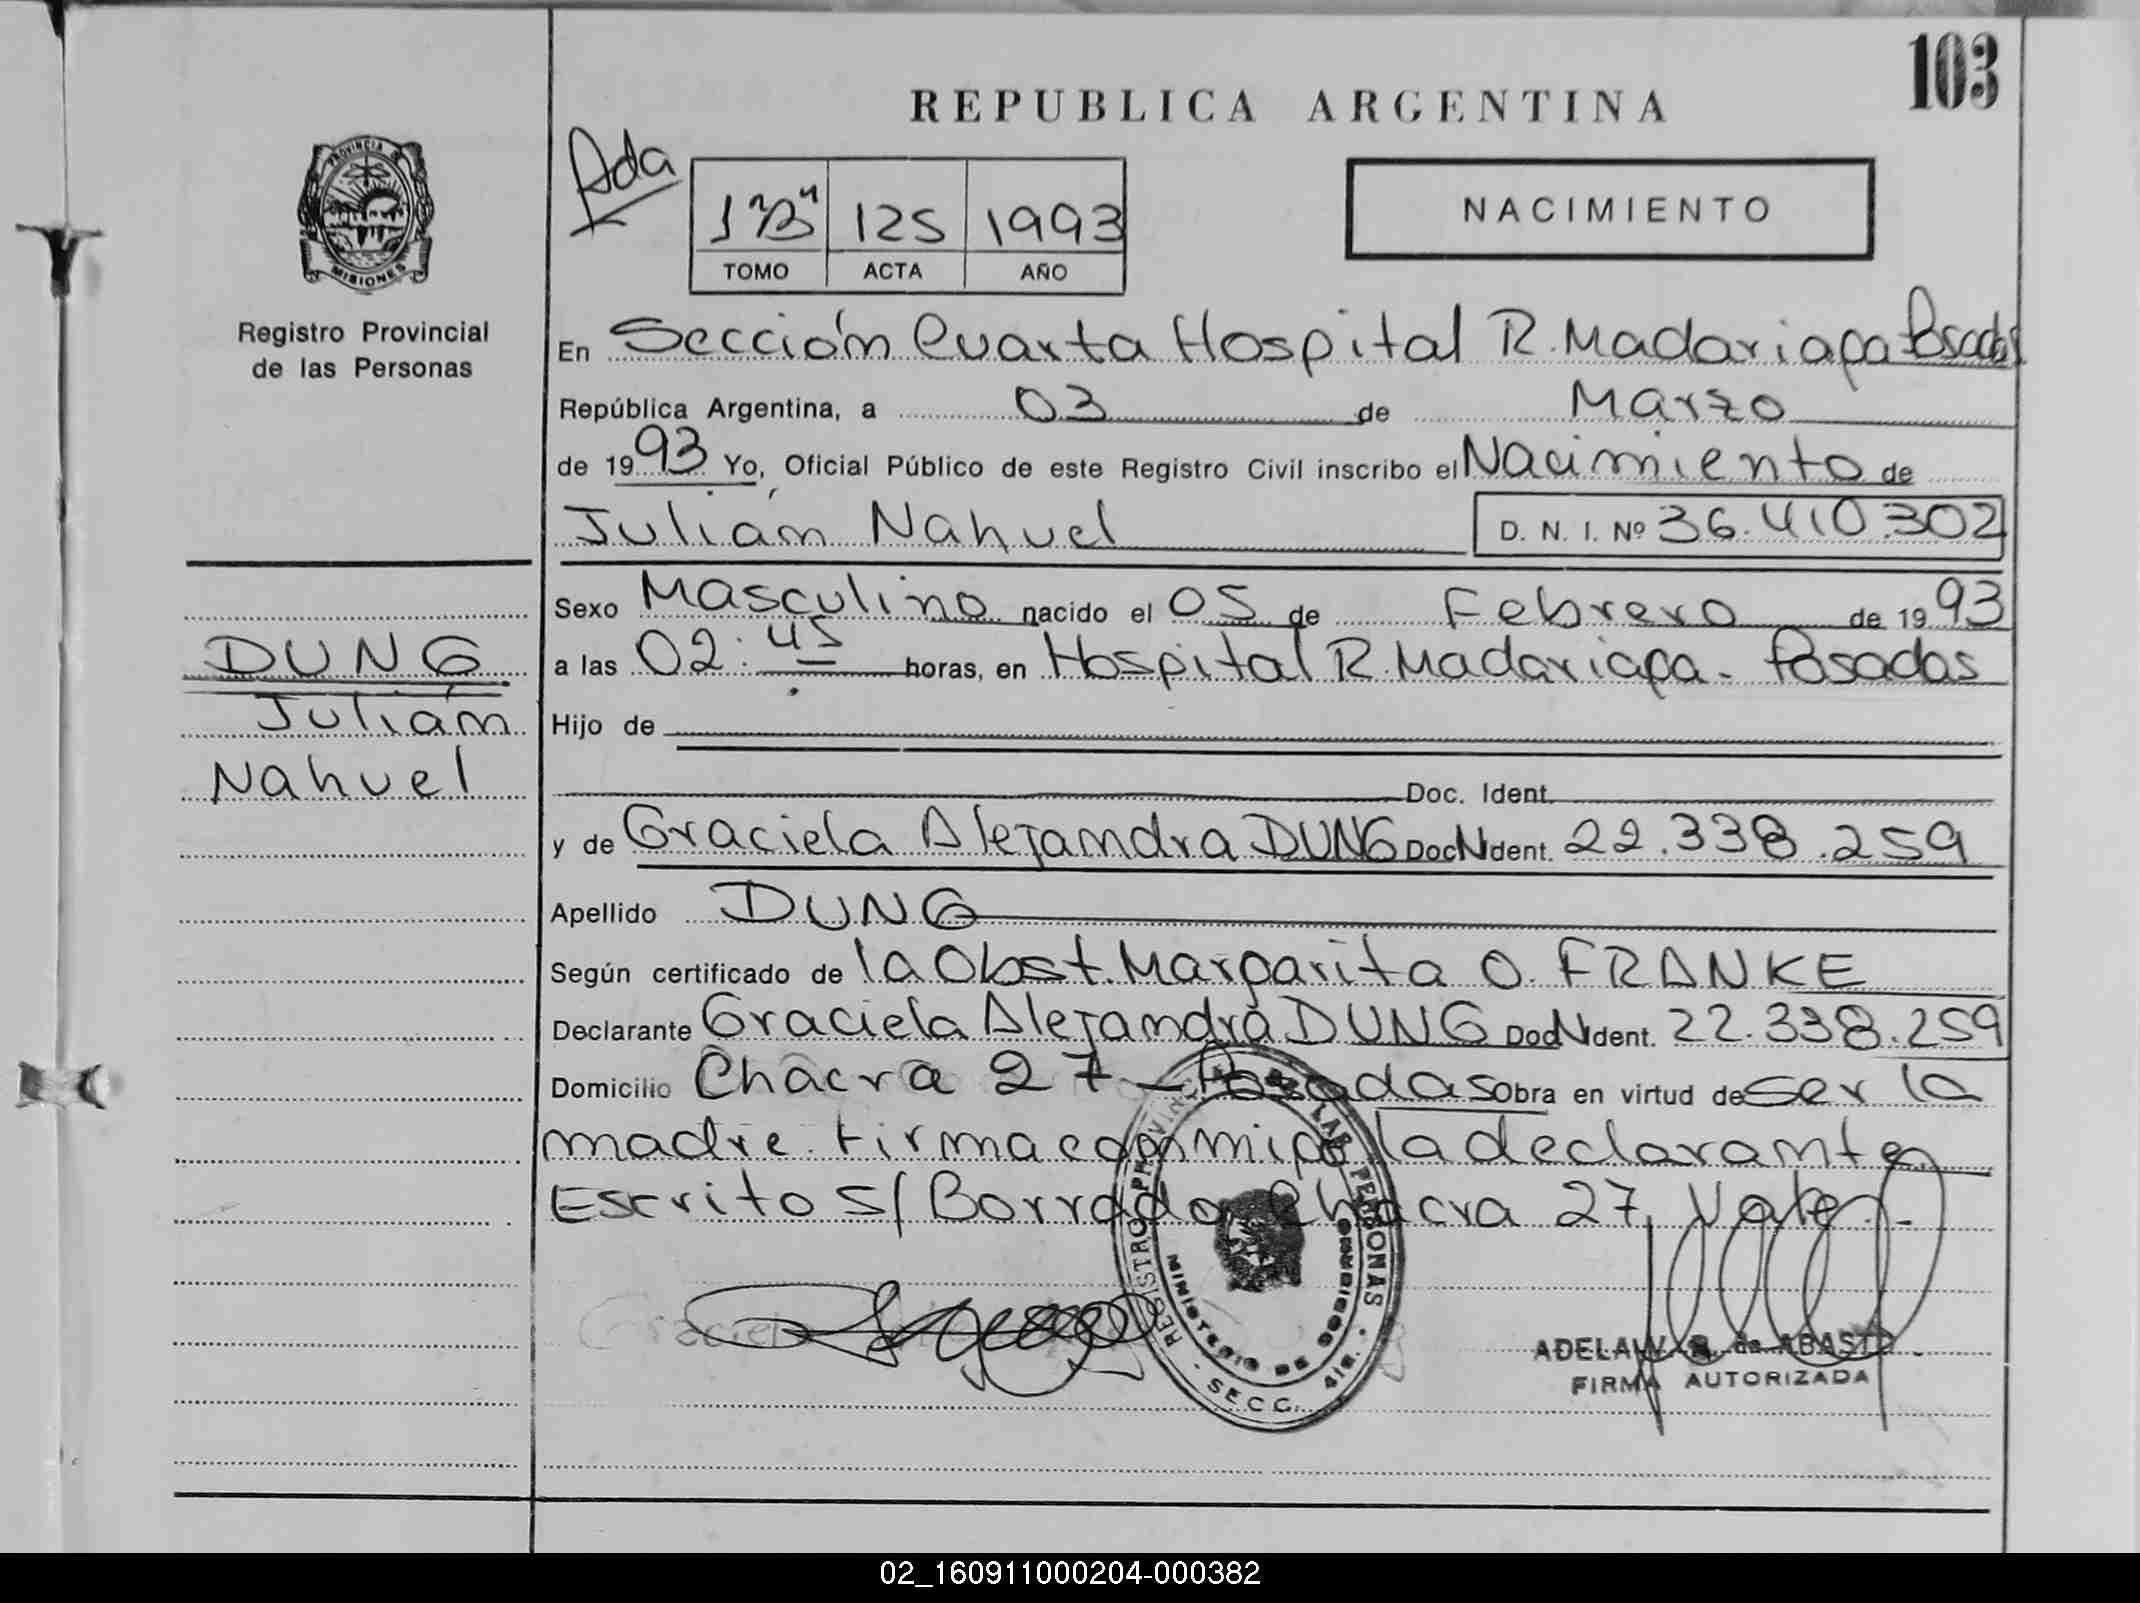 103
REPUBLICA ARGENTINA
Ada
1 "B" 125 1993
TOMO ACTA AÑO
NACIMIENTO
PROVINCIA D MISIONES
Registro Provincial
de las Personas
En Sección Cuarta Hospital R. Madariaga Posadas
República Argentina, a 03 de Marzo
de 1993 Yo, Oficial Público de este Registro Civil inscribo el Nacimiento de
Julián Nahuel D. N. I. Nº 36.410.302
Sexo Masculino nacido el 05 de Febrero de 1993
DUNG
a las 02:45 horas, en Hospital R. Madariaga - Posadas
Julián
Hijo de
Nahuel
Doc. Ident.
y de Graciela Alejandra DUNG Doc N Ident. 22.338.259
Apellido DUNG
Según certificado de la Obst. Margarita O. FRANKE
Declarante Graciela Alejandra DUNG Doc N Ident. 22.338.259
Domicilio Chacra 27 - Posadas Obra en virtud de ser la
madre. Firma conmigo la declarante
Escrito s/ Borrado Chacra 27, Vale.-
Graciela
REGISTRO PROVINCIAL DE LAS PERSONAS
MINISTERIO DE GOBIERNO
SECC. 4ta.
de ABASTO
FIRMA AUTORIZADA
02_160911000204-000382